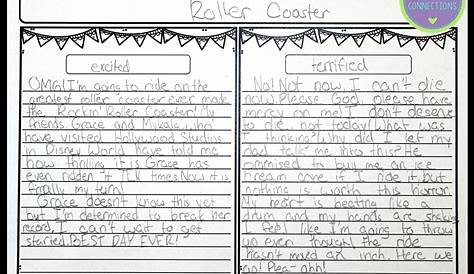 CONNECTIONS
Roller Coaster
excited
OMG! I'm going to ride on the
greatest roller coaster ever made
the Rockin' Roller Coaster! My
friends, Grace and Mikala, who
have visited Hollywood Studios
in Disney World have told me
how thrilling it is. Grace has
even ridden it times. Now it is
finally my turn!
Grace doesn't know this yet
but I'm determined to break her
record. I can't wait to get
started. BEST DAY EVER!
terrified
No! Not now, I can't die
now. Please God, please have
mercy on me! I don't deserve
to die not today! What was
I thinking? Why did I let my
dad talk me into this? He
promised to buy me an ice
cream cone if I ride it, but
nothing is worth this horror.
My heart is beating like a
drum and my hands are shaking
I feel like I'm going to throw
up even though the ride
hasn't even started. Here we
go! Plea-ahh!